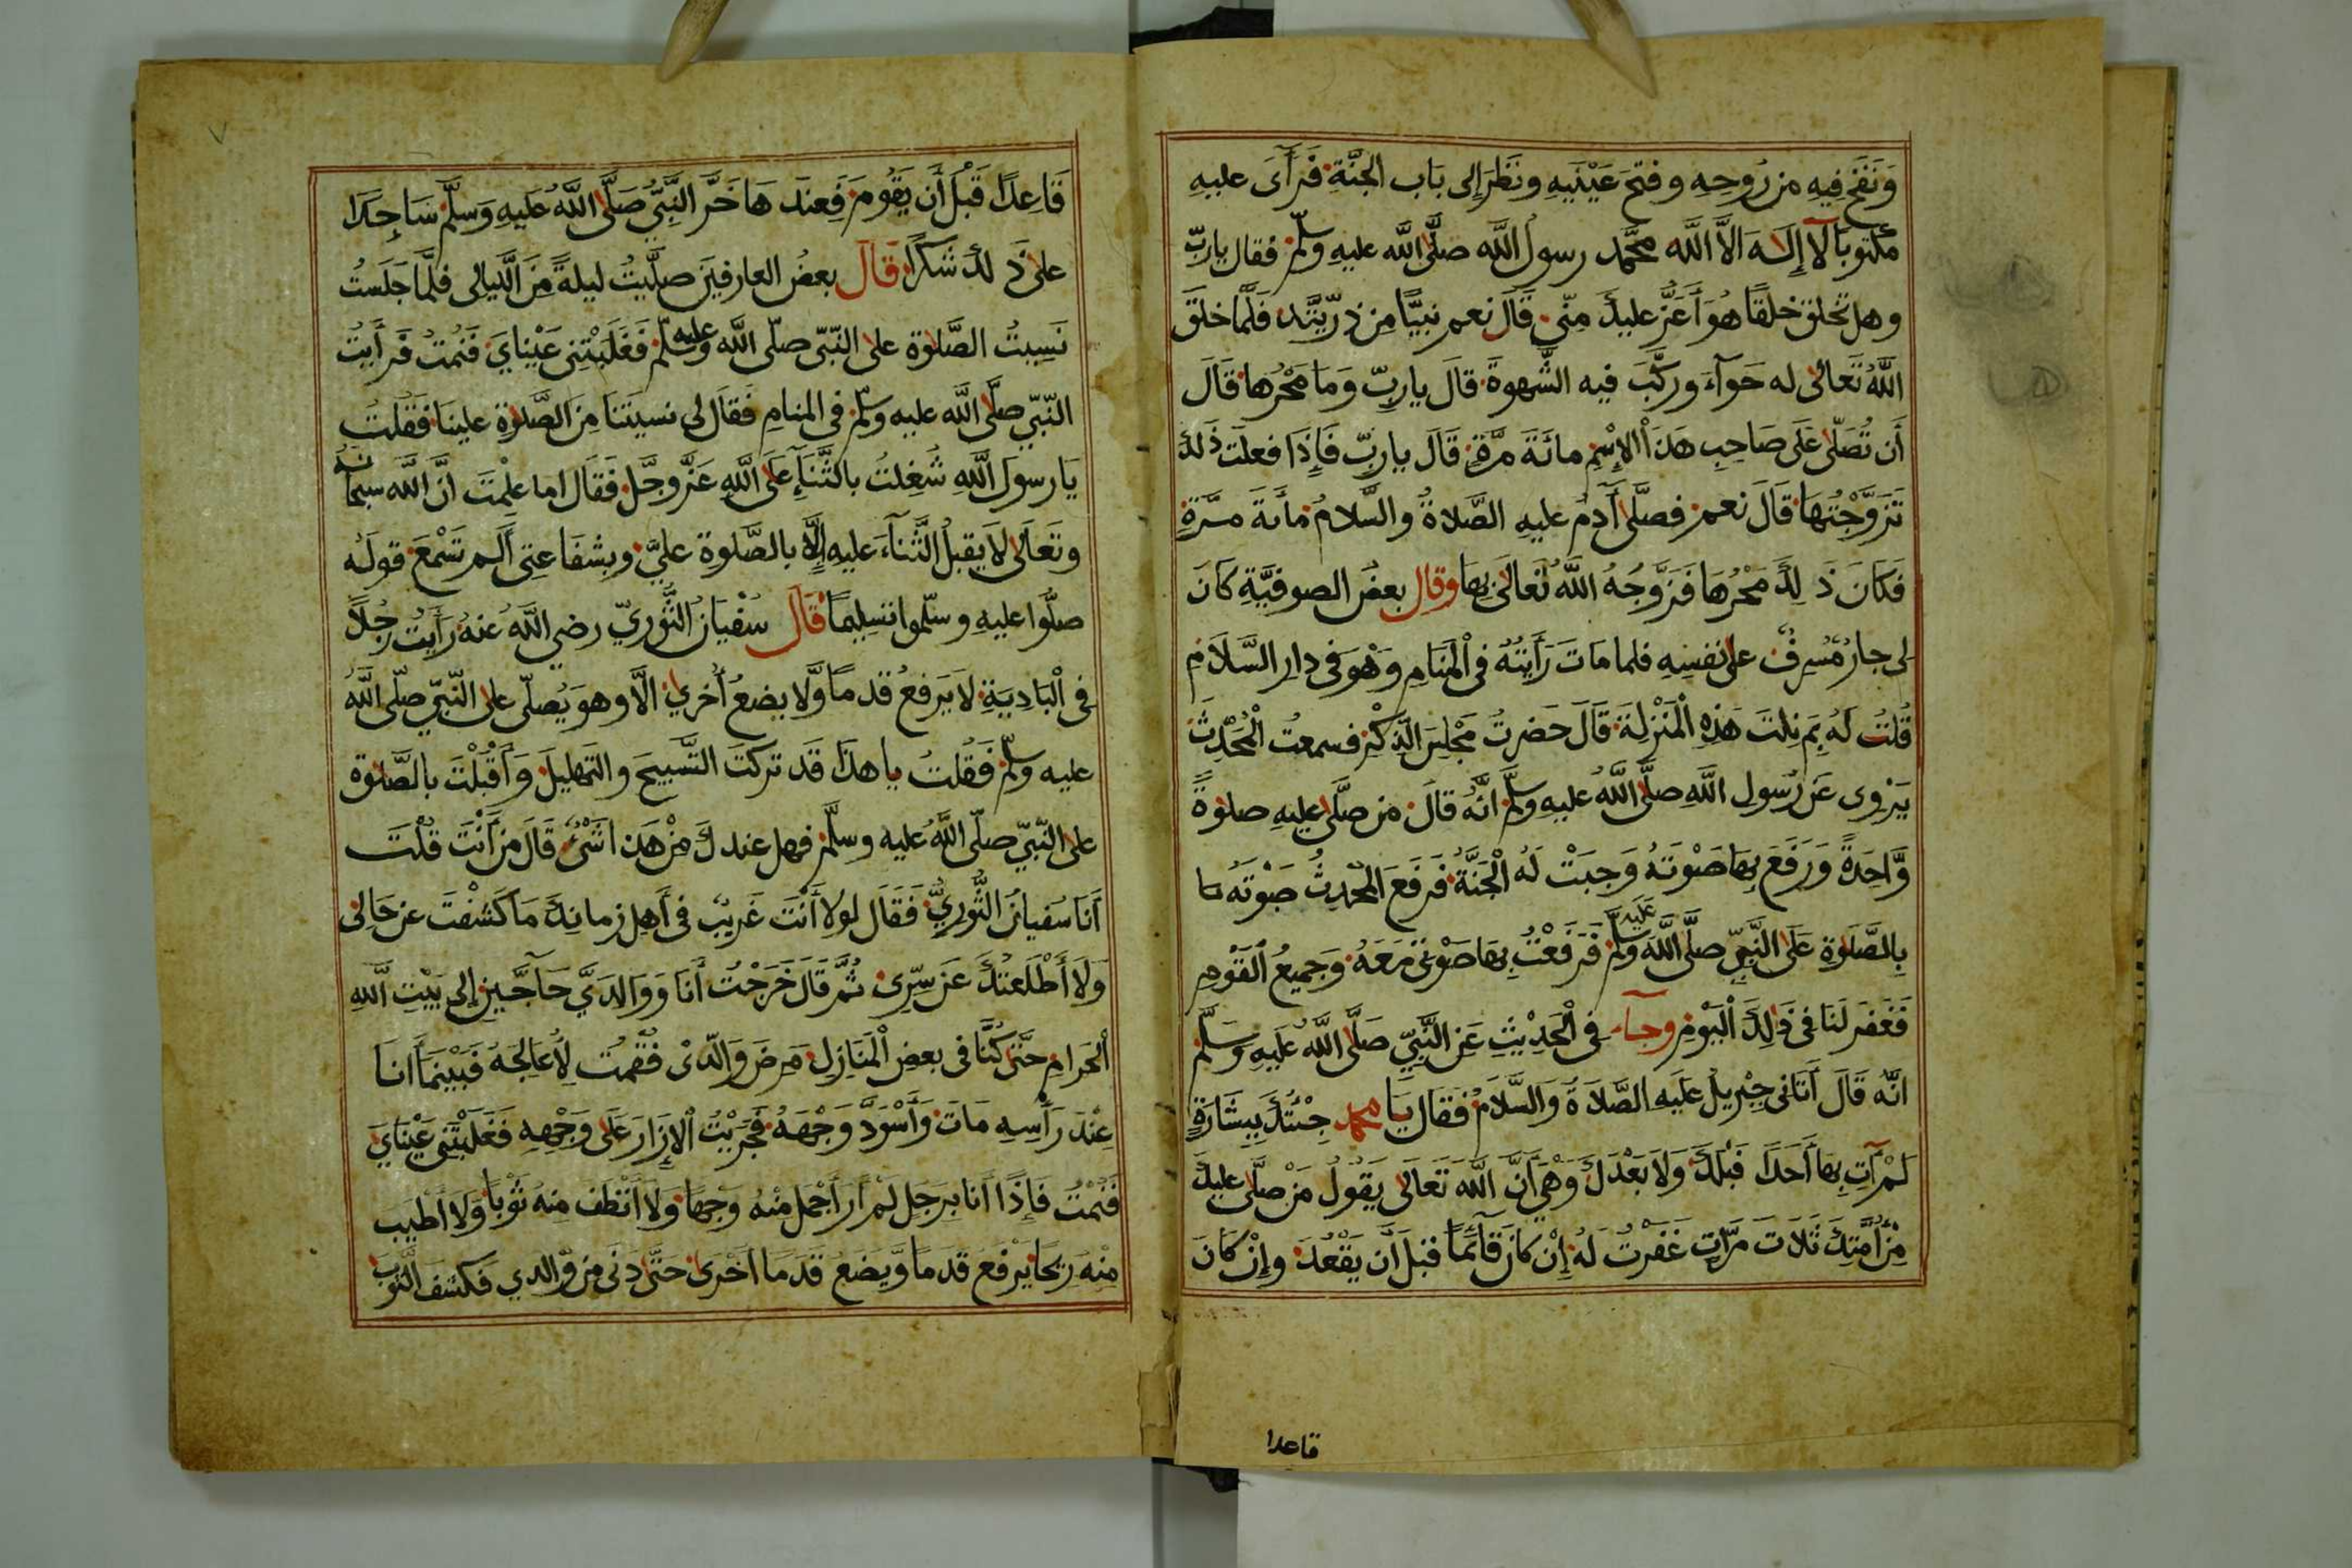 وَنَفَخَ فِيهِ مِن رُوحِهِ وفتحَ عَيْنَيهِ ونَظَرَ إلى بَاب الجَنَّةِ فَرَأَى عليهِ
مكتوبًا لا إِلٰهَ الاَّ اللّٰه محمَّد رسول اللّٰه صلَّى اللّٰه عليهِ وسلّم فقال ياربّ
وهل تخلق خلقًا هُوَ أَعَزَّ عليكَ مِنّى قَالَ نعم نبيًّا مِن ذرّيّتك فَلَمَّا خلقَ
اللّٰهُ تَعَالٰى له حَوآءَ وركَّبَ فيه الشَّهوةَ قال ياربِّ وَمَا مَهْرُها قَالَ
أَن تُصَلّى عَلَى صَاحِبِ هَذَا الإسْمِ مائَةَ مرَّةٍ قَالَ ياربِّ فَإِذَا فعلتُ ذَلكَ
تَزَوَّجْتُهَا قَالَ نعم فصلَّى آدَمُ عليهِ الصَّلاةُ والسَّلامُ مأئةَ مرَّةٍ
فَكَانَ ذَ لِكَ مَهْرُهَا فَزَوَّجَهُ اللّٰهُ تَعالَى بِهَا وقال بعضُ الصوفيَّةِ كانَ
لى جارٌ مُسرِفٌ على نفسِهِ فلما مَاتَ رَأَيتُهُ فى الْمَنَامِ وَهْوَ فى دارِ السَّلَامِ
قُلتُ لَهُ بِمَ نِلتَ هَذِهِ الْمَنْزِلَةَ قَالَ حَضرتُ مَجْلِسَ الذِّكْرِ فسمعتُ الْمُحَدِّثَ
يَرْوِى عَن رَسُولِ اللّٰهِ صلَّى اللّٰهُ عليهِ وسلَّم انَّهُ قالَ من صلَّى عليهِ صلوةً
وَّاحِدَةً وَرَفَعَ بِهَا صَوْتَهُ وَجبَتْ لَهُ الْجَنَّةُ فَرفَعَ المُحدِثُ صَوْتَهُ
بِالصَّلَوةِ عَلَى النَّبِيِّ صلَّى اللّٰه عليه وسلم فَرَفَعْتُ بِهَا صَوْتِى مَعَهُ وَجميعُ القَوْمِ
فَغَفَرَ لَنَا فى ذَالِكَ الْيَوْمِ وجآءَ فى الْحَدِيْثِ عَنِ النَّبِيِّ صَلَّى اللّٰهُ عَلَيهِ وَسَلَّم
انَّه قَالَ أَتَانى جِبْرِيلُ عَلَيهِ الصَّلَاةُ وَالسَّلَامُ فَقَال يَا محمد جِئتُكَ بِبِشَارَةٍ
لَمْ آتِ بِهَا أَحَدًا قَبْلَكَ وَلاَ بَعْدَكَ وَهْيَ أَنَّ اللّٰهَ تَعَالَى يَقُولُ مَنْ صلَّى عليكَ
مِنْ أُمَّتِكَ ثَلَاثَ مَرَّاتٍ غَفَرْتُ لَهُ إِنْ كَانَ قآئمًا قبلَ أَن يَقْعُدَ وإِنْ كَانَ
قاعدا
قَاعِدًا قَبْلَ أَن يَقُومَ فَعِندَ هَا خَرَّ النَّبِيُّ صَلَّى اللّٰهُ عَلَيهِ وَسَلَّم سَاجِدًا
على ذَ لكَ شُكرًا قَالَ بعضُ العارفينَ صلَّيتُ ليلةً مِّنَ الَّليالى فلمَّا جَلَستُ
نَسِيتُ الصَّلوٰة على النّبّى صلّى اللّٰه عليه وسلّم فَغَلَبَتْنِى عَيْنَايَ فَنِمتُ فَرأيتُ
النّبّي صلَّى اللّٰه عليه وسلم فى المنامِ فَقَالَ لى نسيتَنَا مِنَ الصَّلوٰةِ علينَا فَقُلتُ
يَا رسُولَ اللّٰهِ شُغِلتُ بالثَّنَآءِ عَلَى اللّٰهِ عَزَّ وجَّل فَقَالَ اما علِمْتَ انَّ اللّٰه سبحانه
وتَعَالَى لاَ يقبلُ الثَّنَآءَ عَليهِ إِلَّا بالصَّلوةِ عليَّ وبِشفَاعتِى أَلَم تَسْمَعَ قولَهُ
صلُّوا عليهِ وسلّموا تسليمًا قَال سُفْيَانُ الثَّوريّ رضى اللّٰهُ عَنهُ رَأَيتُ رجُلاً
فى الْبَادِيَةِ لا يَرفعُ قدمًا وَّلا يضعُ أُخرى الَّا وهوَ يُصلّى على النّبّي صلّى اللّٰهُ
عليه وسلّم فَقُلتُ يا هذَا قَد تركتَ التَّسبيحَ والتّهليلَ وَأَقْبلْتَ بالصَّلوة
على النّبّي صلّى اللّٰهُ عليه وسلَّم فهل عندكَ مِنْ هَذا شَئٌ قَالَ مَن أَنْتَ قُلْتُ
أَنَا سُفيانُ الثَّوريُّ فَقَالَ لولا أَنْتَ غَريبٌ فى أَهلِ زمانِكَ مَا كَشَفْتُ عن حَالِى
وَلَا أَطْلَعتُكَ عَن سِّرِى ثُمَّ قَالَ خَرَجْتُ أَنَا وَوَالِدَيَّ حَآجَّينِ إِلى بَيْتِ اللّٰهِ
الْحَرامِ حتَّى كُنَّا فى بعضِ الْمَنَازِلِ مَرِضَ وَالّدى فَقُمْتُ لِأُعَالِجَهُ فَبَيْنَمَا أَنَا
عِنْدَ رَأْسِهِ مَاتَ وَأَسْوَدَّ وَجْهَهُ فَجَرَيْتُ الْإِزَارَ عَلَى وَجْهِهِ فَغَلَبَتْنِى عَيْنَايَ
فَنِمْتُ فَإِذَا أَنَا بِرَجلٍ لَمْ أَرَ أَجْمَلَ مِنْهُ وَجْهًا وَلاَ أَنْظَفَ مِنهُ ثَوْبًا وَلا أَطْيَبَ
مِنْهُ رِيْحًا يَرْفَعُ قَدَمًا وَّيَضَعُ قَدَمًا أُخْرَى حَتَّى دَنَى مِن وَّالدي فَكَشَفَ الثّوبَ